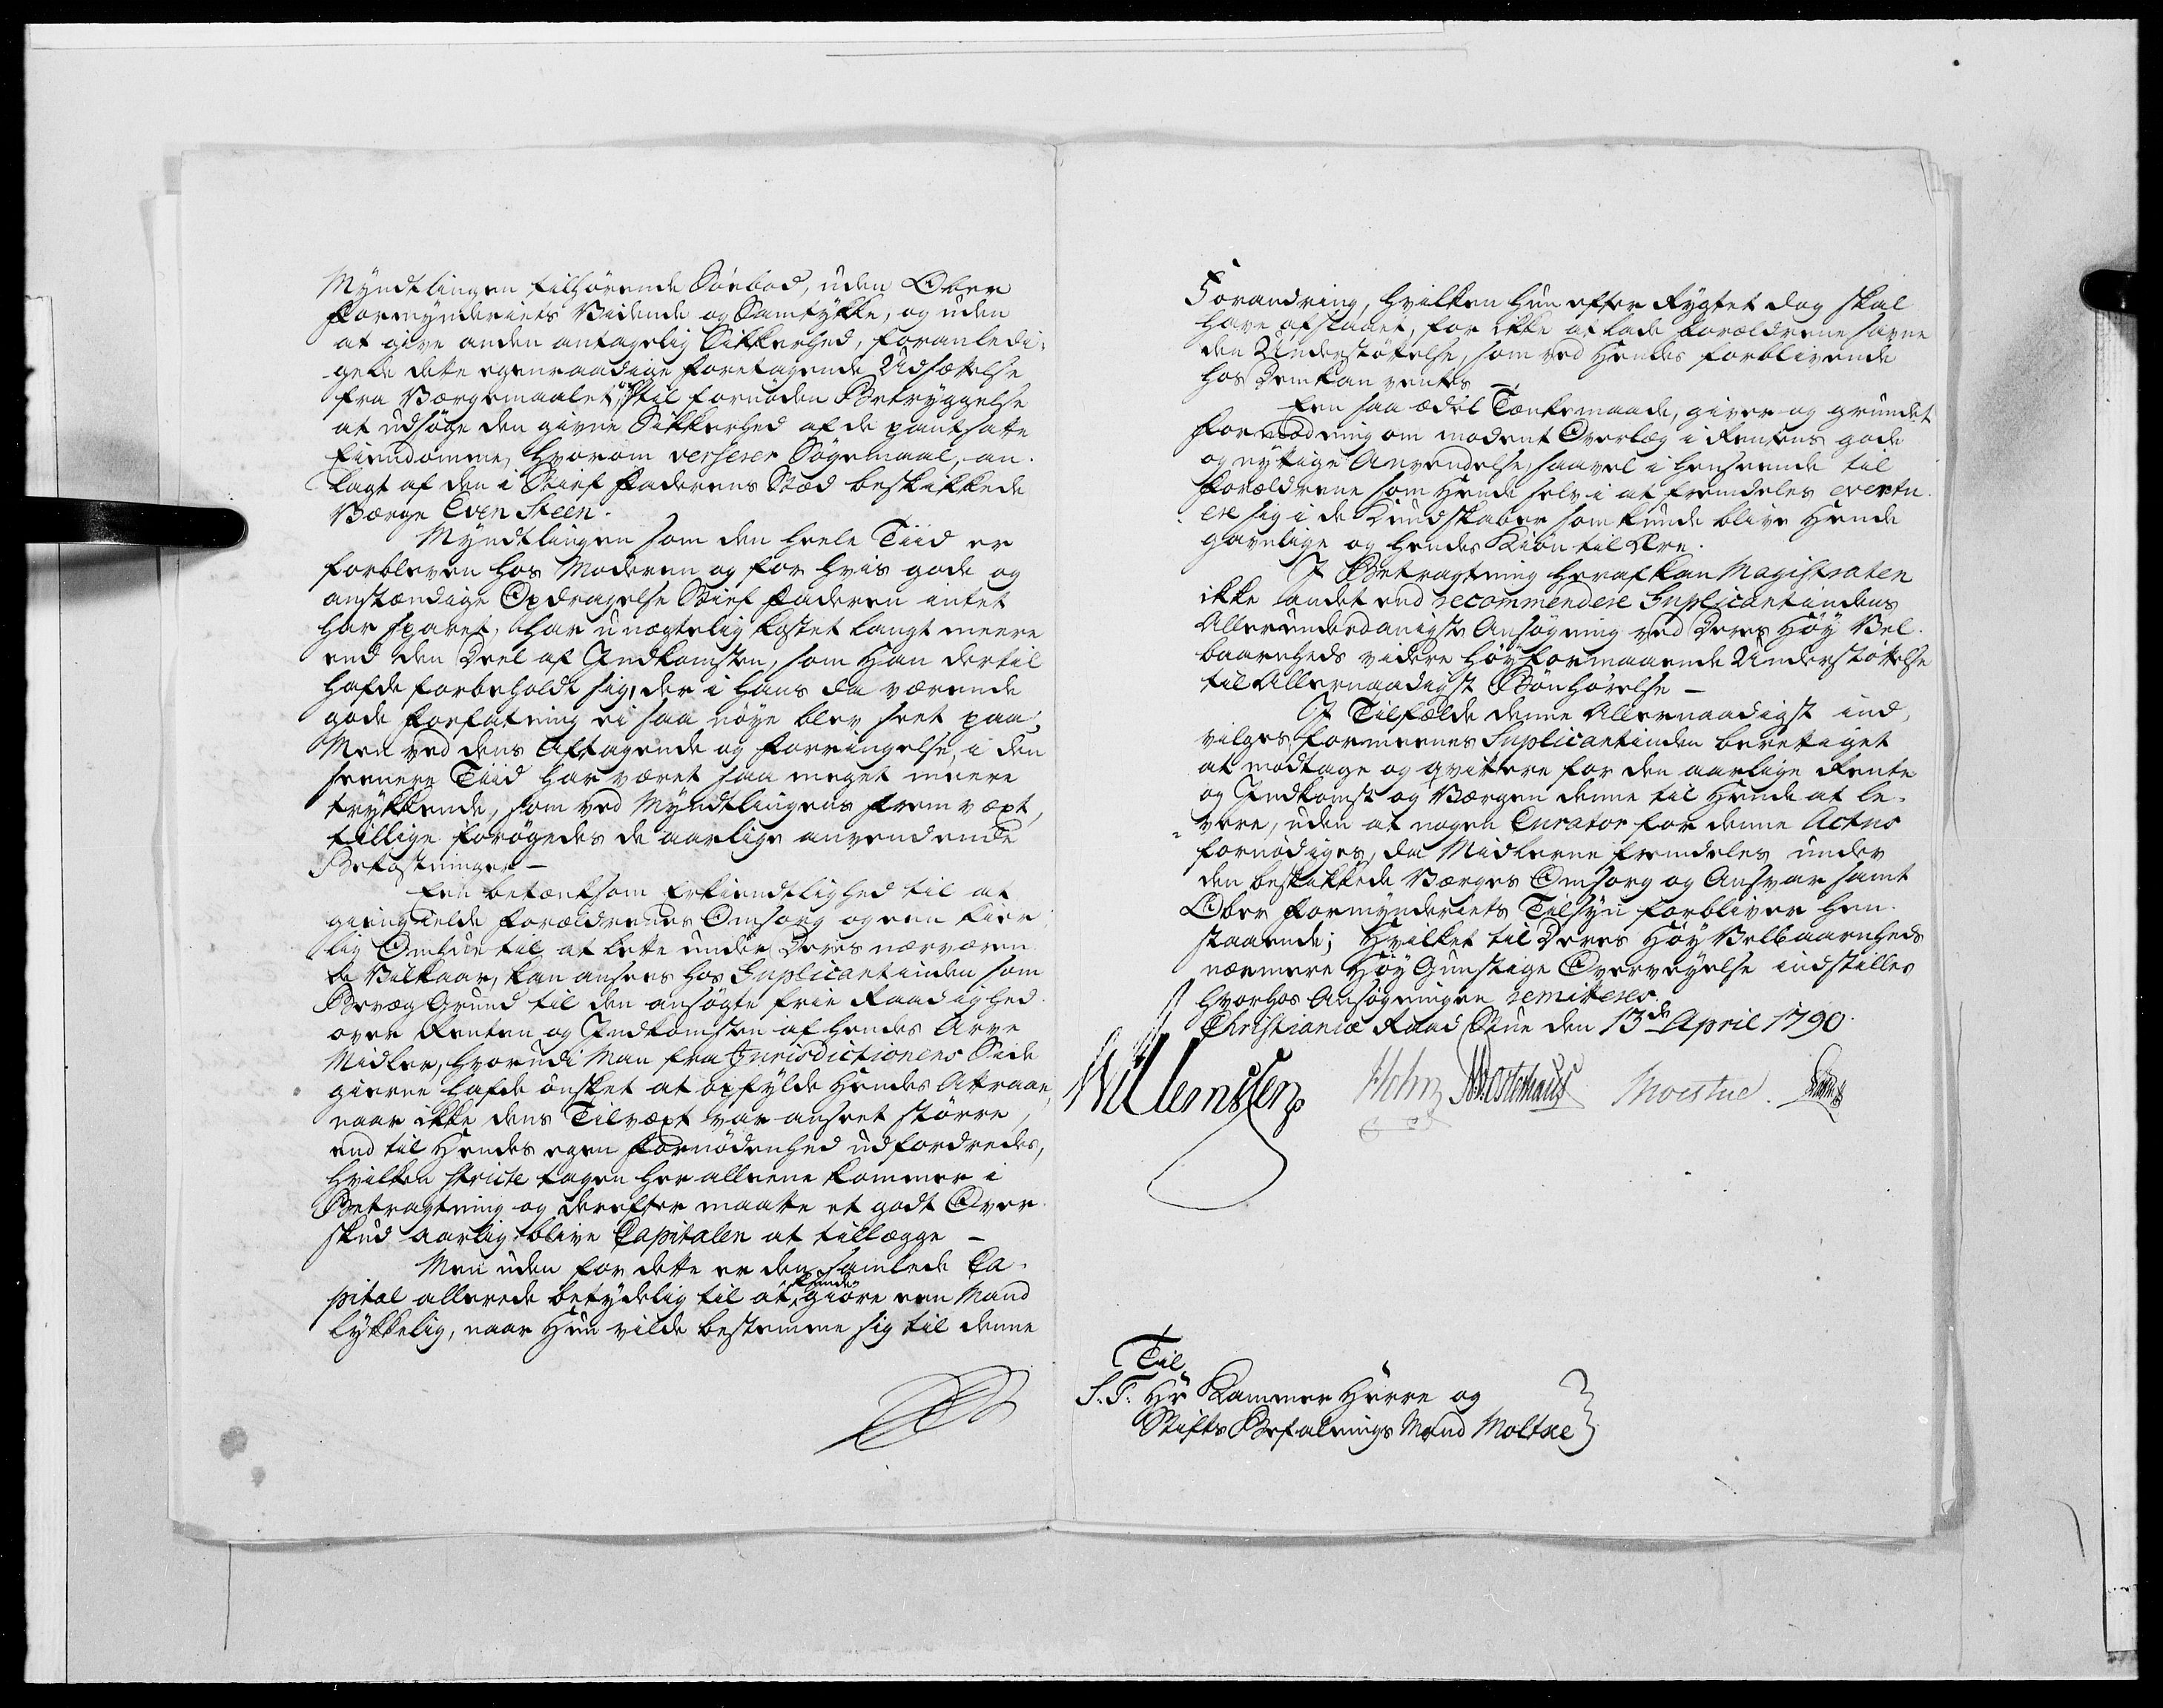 Myndtlingen tilhørende Søebod, uden Ober
Formynderiets Vidende og Samtykke, og uden
at give anden antagelig Sikkerhed, foranledi-
gede dette egenraadige Foretagende Udsættelse
fra Værgemaalet, og til fornøden Betryggelse
at udsøge den givne Sikkerhed af de pantsatte
Eiendomme, hvorom verserer Søgemaal, an-
lagt af den i Stief Faderens Sted beskikkede
Værge Even Steen.
Myndtlingen som den heele Tiid er
forbleven hos Moderen og for hvis gode og
anstændige Opdragelse Stief Faderen intet
har sparet, har unægtelig kostet langt meere
end den Deel af Indkomsten, som Han dertil
hafde forbeholdt sig, der i hans da værende
gode Forfatning ei saa nøye blev seet paa;
Men ved dens Aftagende og Forringelse, i den
seenere Tiid har været saa meget meere
trykkende, som ved Myndtlingens Fremvæxt,
tillige forøgedes de aarlige anvendende
Bekostninger –
Een betænksom Erkiendtlighed til at
giengielde Forældrenes Omsorg og een kier-
lig Omhue til at lette under Deres nærværen
de Vilkaar, kan ansees hos Suplicantinden som
Bevæg Grund til den ansøgte frie Raadighed
over Renten og Indkomsten af hendes Arve
Midler, hvorudi Man fra Jurisdictionens Side
gierne hafde ønsket at opfylde Hendes Attraae,
naar ikke dens Tilvæxt var anseet større,
end til Hendes egen Fornødenhed udfordredes,
hvilken stricte tagen her alleene kommer i
Betragtning og derefter maatte et godt Over-
skud aarlig blive Capitalen at tillægge –
Men uden for dette er den samlede Ca-
pital allerede betydelig til at kunde giøre een Mand
lykkelig, naar Hun vilde bestemme sig til denne
Forandring, hvilken hun efter Rygtet dog skal
have afslaaet, for ikke at lade Forældrene savne
den Understøttelse, som ved Hendes forblivende
hos Dem kan ventes –
Een saa ædel Tænkemaade, giver og grundet
Formodning om modent Overlæg i Rentens gode
og nyttige Anvendelse, saavel i henseende til
Forældrene som Hende selv i at fremdeles
ere sig i de Kundskaber som kunde blive Hende
gavnlige og hendes Kiøn til Ære.
I Betragtning heraf kan Magistraten
ikke andet end recommendere Suplicantindens
Allerunderdanigste Ansøgning ved Deres Høy Vel-
baarenheds videre høyformaaende Understøttelse
til Allernaadigst Bønhørelse –
I Tilfælde denne Allernaadigst ind-
vilges, formeenes Suplicantinden berettiget
at modtage og qvittere for den aarlige Rente
og Indkomst og Værgen denne til Hende at le-
vere, uden at nogen Curator for denne Actus
fornødiges, da Midlerne fremdeles under
den beskikkede Værges Omsorg og Ansvar samt
Ober Formynderiets Tilsyn forbliver hen-
staaende; Hvilket til Deres Høy Velbaarenheds
nærmere Høy Gunstige Overveyelse indstilles
hvorhos Ansøgningen remitteres.
Christianiæ Raad Stue den 13de April 1790.
Willemsen Holm Mosterhaus Moestue.
Til
S. T. Hr Kammer Herre og
Stifts Befalnings Mand Moltke